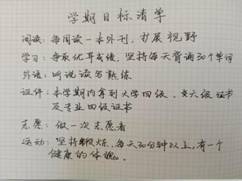 学期目标清单
阅读：每周读一本外刊，扩展视野
学习：争取优异成绩，坚持每天背诵30个单词
外语：听说读写熟练
证件：本学期内拿到大学四级，六级证书
及专业四级证书
志愿：做一次志愿者
运动：坚持锻炼，每天30分钟以上，有一个
健康的体魄。